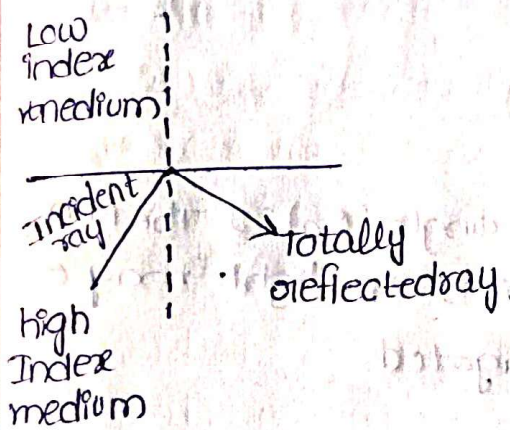 Low
index
medium
Incident
ray
Totally
reflected ray
high
Index
medium